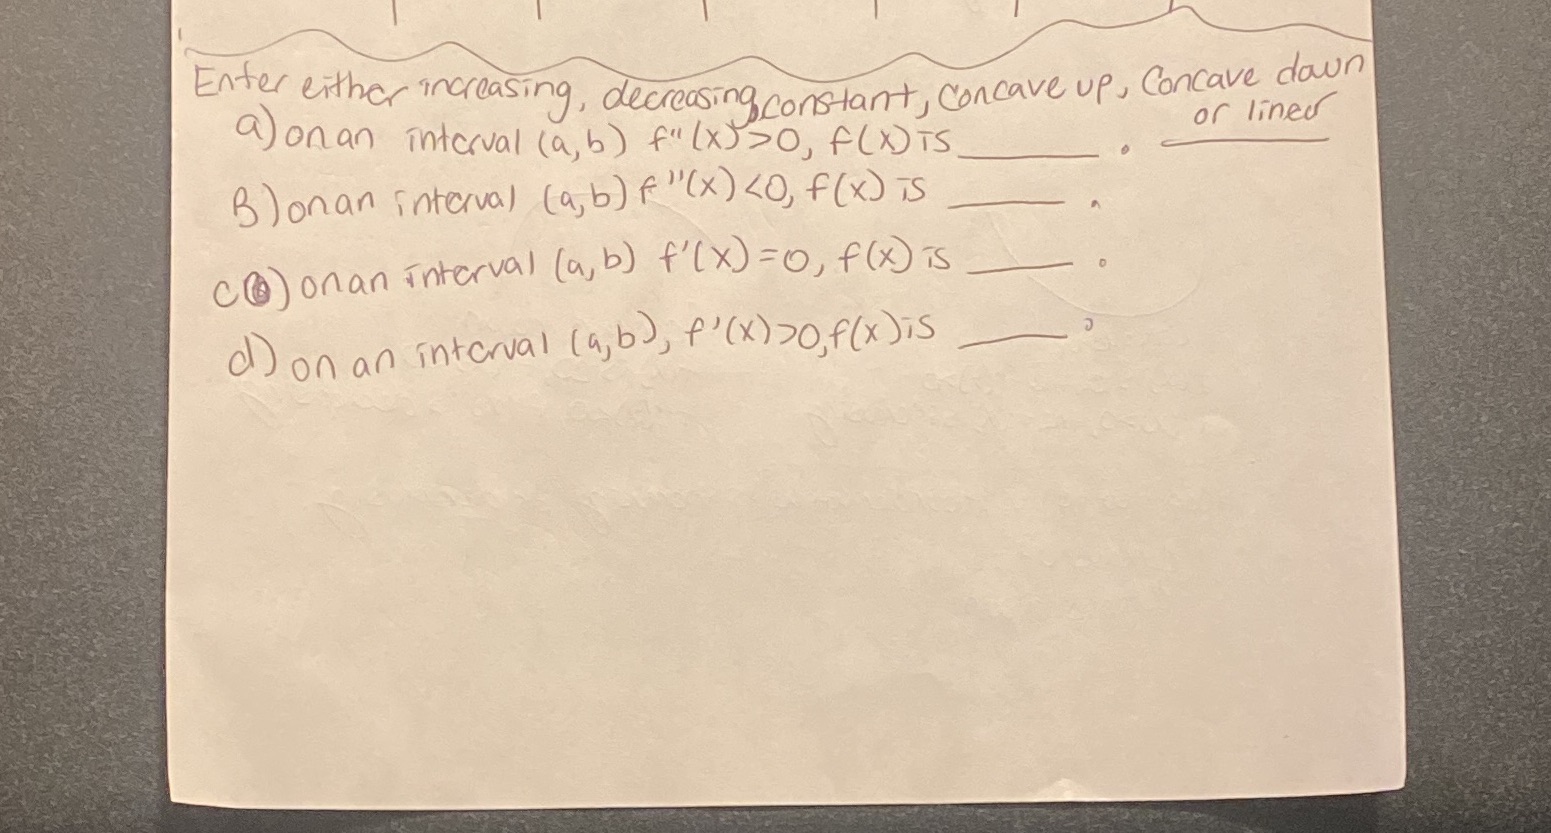 Enter either increasing, decreasing, constant, concave up, Concave down
or linear
a) on an interval (a,b) f"(x)>0, f(x) is ______.
B) on an interval (a,b) f"(x)<0, f(x) is ______.
c) on an interval (a,b) f'(x)=0, f(x) is ______.
d) on an interval (a,b), f'(x)>0, f(x) is ______.